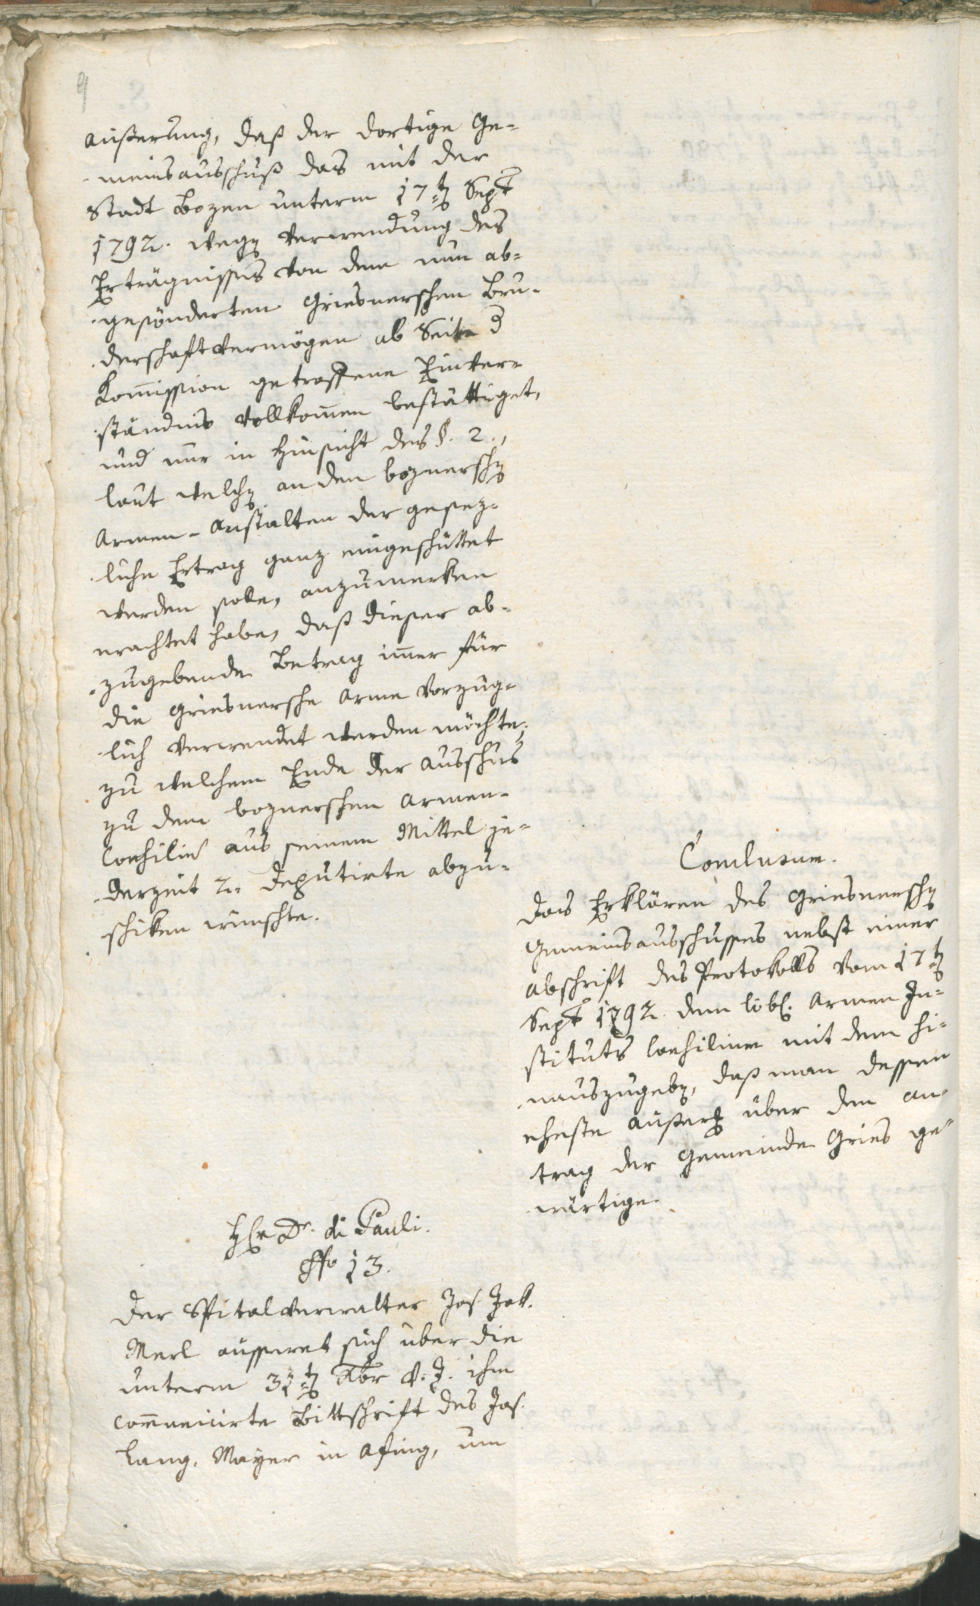 9
äußerung, daß der dortige Ge-
-meinsausschuß das mit der
Stadt Bozen unterm 17t Sept
1792. wegen Verwendung des
Erträgnisses von dem nun ab-
-gesönderten Griesnerschen Bru-
-derschaftvermögen ab Seite d
Kom̄ission getroffene Einver-
-ständnis vollkom̄en bestättiget,
und nur in Hinsicht des §. 2.,
laut welchen an den boznerschen
Armen-Anstalten der gesez-
-liche Ertrag ganz eingeschüttet
werden solle, anzumerken
erachtet habe, daß dieser ab-
-zugebende Betrag im̄er für
die Griesnersche Arme vorzüg-
-lich verwendet werden möchte;
zu welchem Ende der Ausschus
zu dem boznerschen Armen-
Consiliū aus seinem Mittel je-
-derzeit 2. Deputirte abzu-
-schiken wünschte.
Conclusum.
Das Erklären des Griesnerschen
Gemeinsausschusses nebst einer
Abschrift des Protokolls vom 17t
Sept 1792. dem löbl. Armen In-
stituts Consilium mit dem hi-
-nauszugeben, daß man dessen
eheste Äußerung über den An-
-trag der Gemeinde Gries ge-
-wärtige.
Hr Dr. di Pauli.
No 13.
Der Spitalverwalter Jos. Jak.
Merl äusseret sich über die
unterm 31t Xbr v. J. ihm
com̄unicirte Bittschrift des Jos.
Lang, Mayer in Afing, um